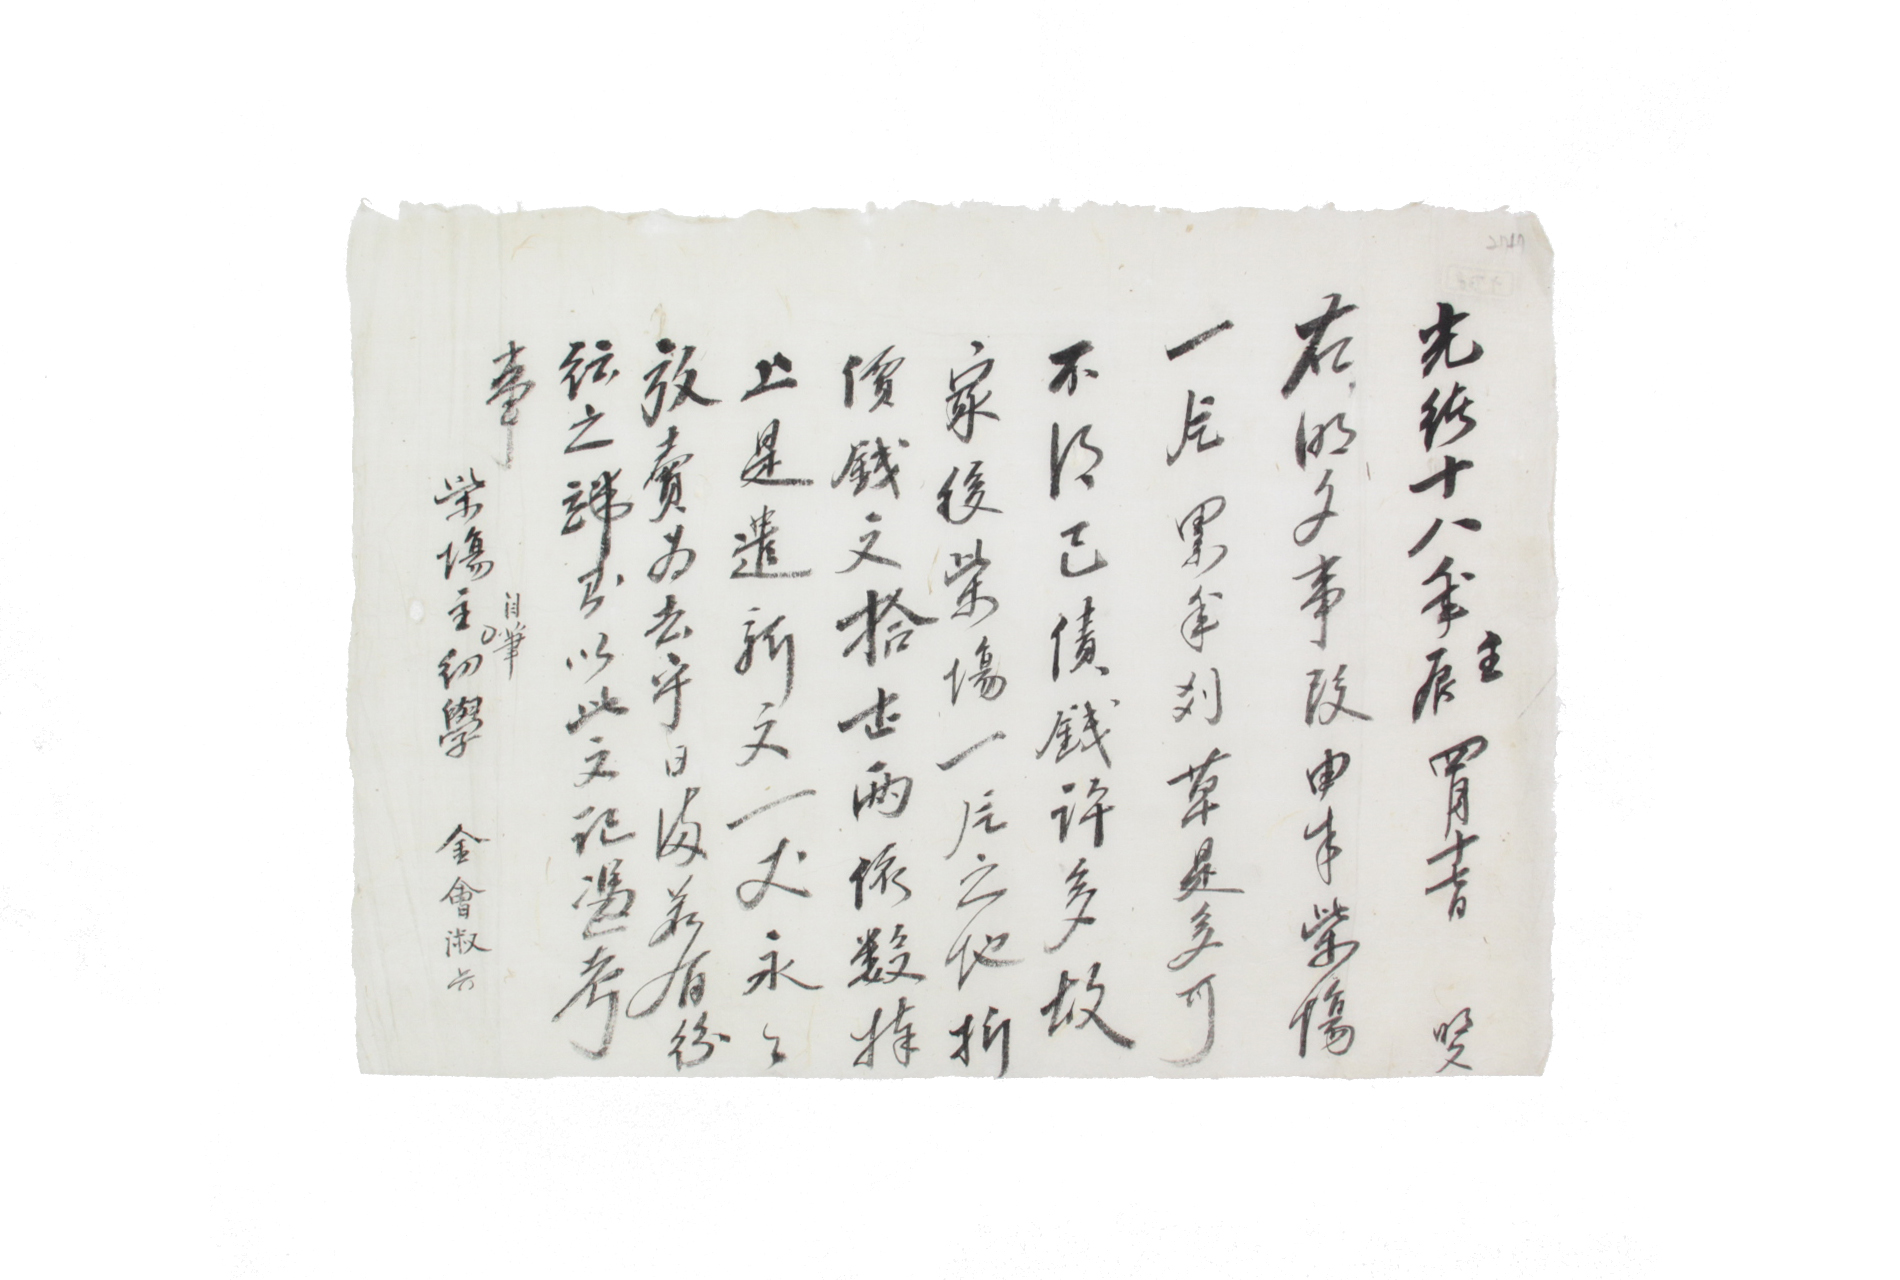 光緒十八年壬辰四月十一日 明文
右明文事段由來柴場
一片累年刈草是多可
不得已債錢許多故
家後柴場一片之地折
價錢文拾七兩依數捧
上是遣新文一丈永永
放賣爲去乎日後若有紛
紜之端則以此文記憑考
事
自筆
柴場主幼學 金會淑